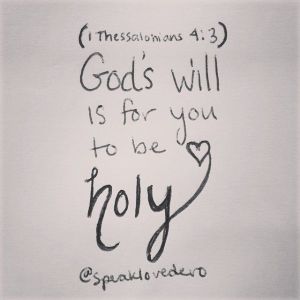 (1 Thessalonians 4:3)
God's will
is for you
to be
holy
@speaklovedevo